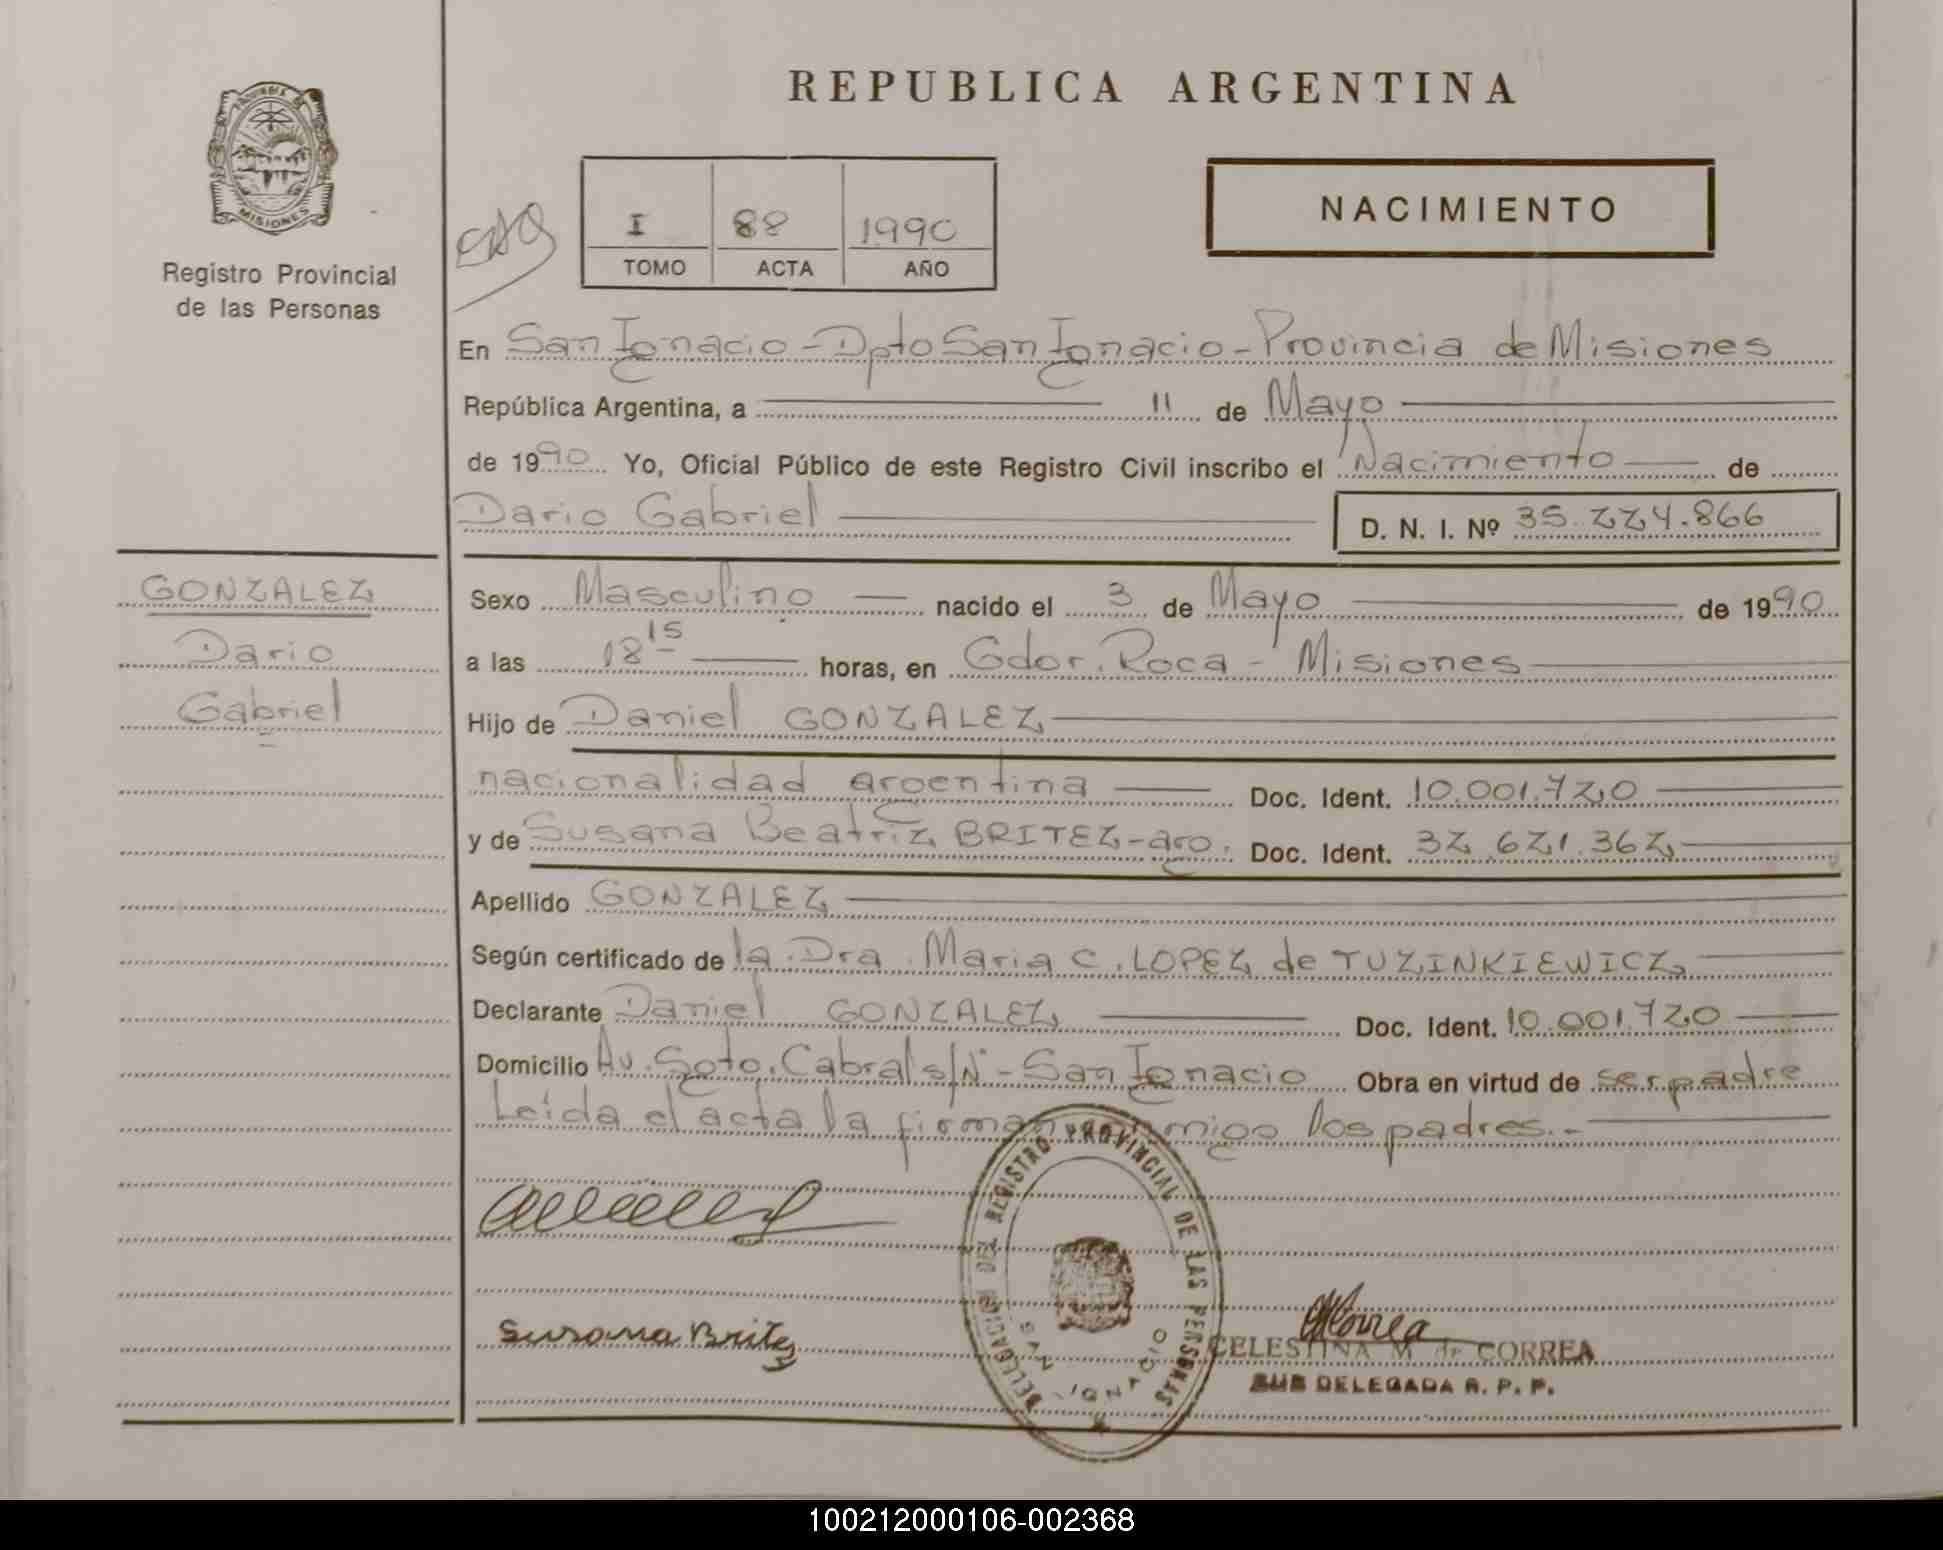 REPUBLICA ARGENTINA
PROVINCIA DE
MISIONES
Registro Provincial
de las Personas
I 88 1990
TOMO ACTA AÑO
NACIMIENTO
En San Ignacio - Dpto San Ignacio - Provincia de Misiones
República Argentina, a 11 de Mayo
de 1990 Yo, Oficial Público de este Registro Civil inscribo el Nacimiento de
Dario Gabriel D. N. I. Nº 35.224.866
GONZALEZ
Dario
Gabriel
Sexo Masculino nacido el 3 de Mayo de 1990
a las 18 15 horas, en Gdor. Roca - Misiones
Hijo de Daniel GONZALEZ
nacionalidad argentina Doc. Ident. 10.001.720
y de Susana Beatriz BRITEZ - arg. Doc. Ident. 32.621.362
Apellido GONZALEZ
Según certificado de la Dra. Maria C. LOPEZ de TUZINKIEWICZ
Declarante Daniel GONZALEZ Doc. Ident. 10.001.720
Domicilio Av. Sgto. Cabral s/Nº - San Ignacio Obra en virtud de ser padre
Leída el acta la firman migo los padres.-
DELEGACION DEL REGISTRO PROVINCIAL DE LAS PERSONAS
SAN IGNACIO
Susana Britez
MCorrea
CELESTINA M de CORREA
SUB DELEGADA R. P. P.
100212000106-002368